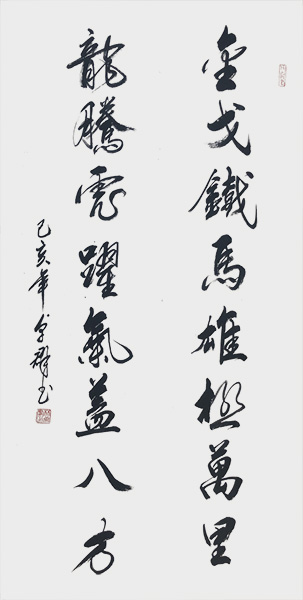 金戈鐵馬雄極萬里
龍騰虎躍氣蓋八方
己亥年